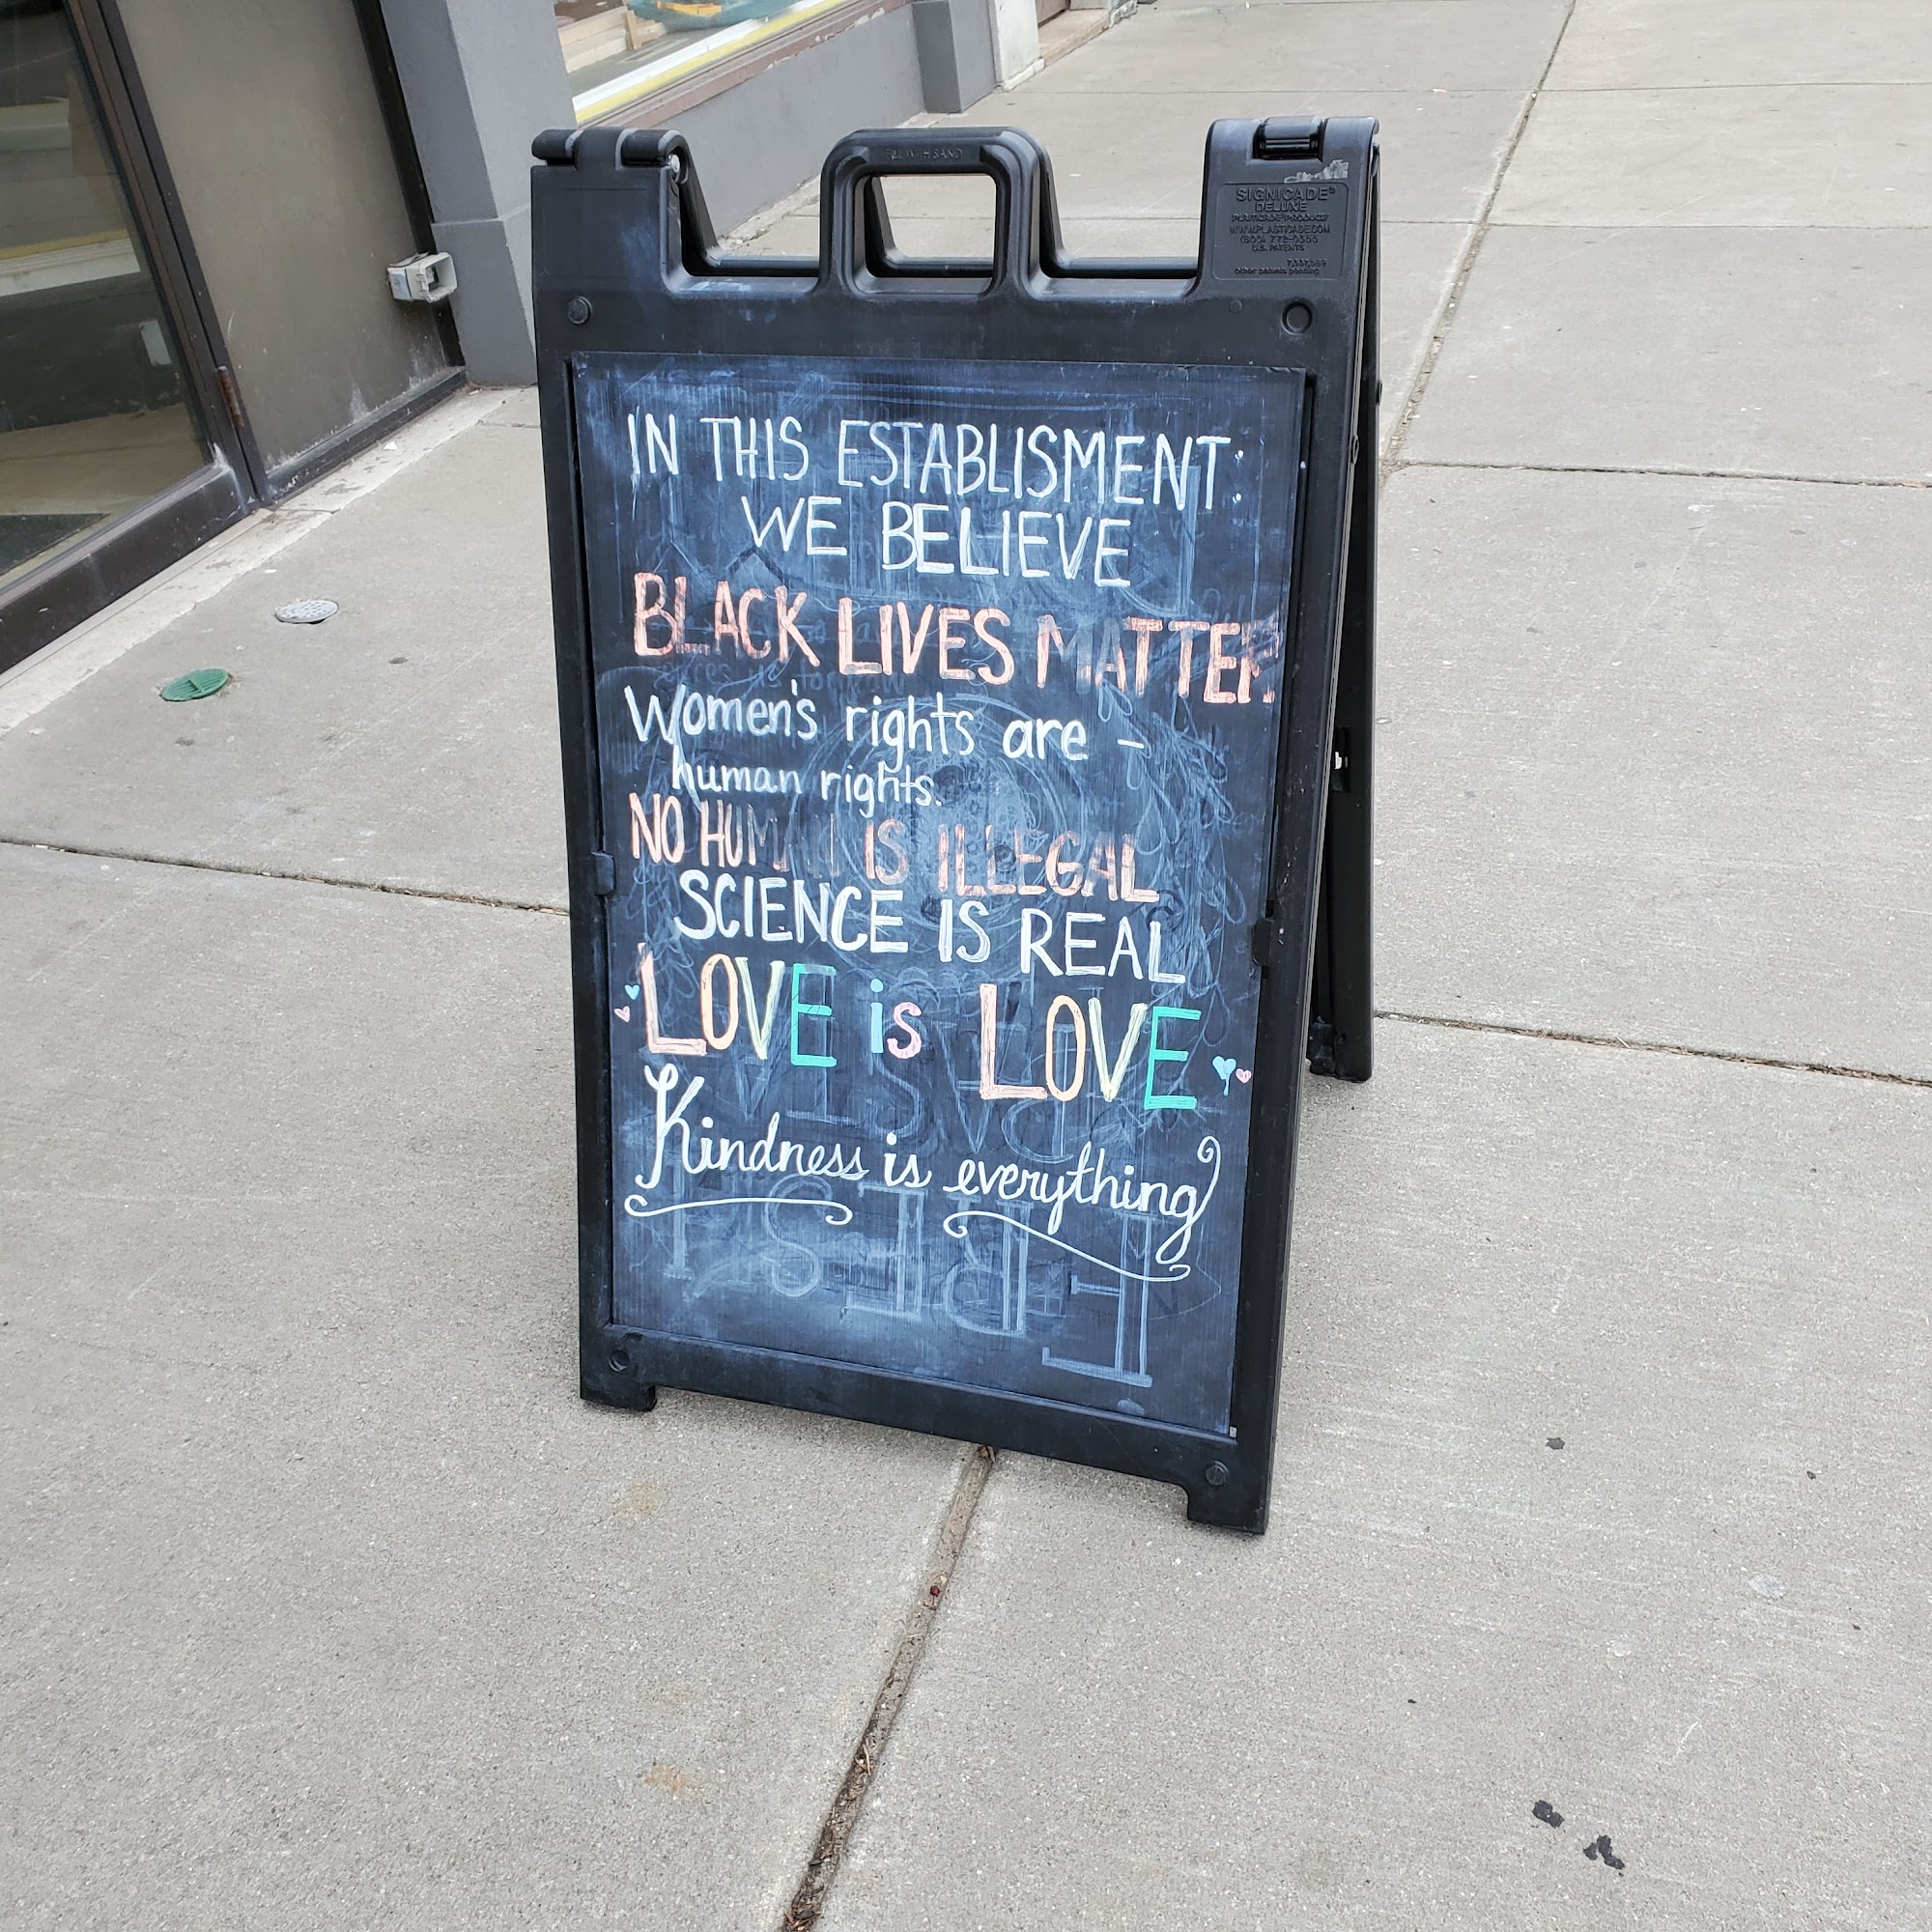 FILL WITH SAND
SIGNICADE®
DELUXE
PLASTICADE PRODUCTS
WWW.PLASTICADE.COM
(800) 772-0355
U.S. PATENTS
other patents pending
IN THIS ESTABLISMENT:
WE BELIEVE
BLACK LIVES MATTER
Women's rights are -
human rights.
NO HUMAN IS ILLEGAL
SCIENCE IS REAL
LOVE is LOVE
Kindness is everything